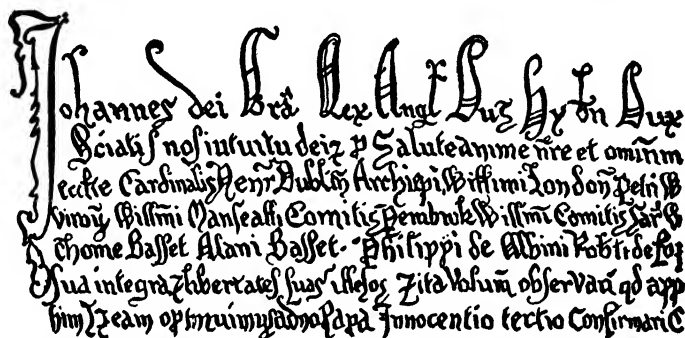 Johannes dei Grã Rex Angł Duz Hybn Dux
Sciatis nos intuitu dei et p Salute anime nre et ominm
eccłe Cardinalis Henr Dublin Archiepi Willimi London Petri W
Willmi Manscalli Comitis Pembruk Willmi Comitis Sar W
Thome Basset Alani Basset Philippi de Albini Robti de
Sua integra et libertates suas illesas et ita Volum observari qd app
him et eam optinuimus a dno Papa Innocentio tertio Confirmari C